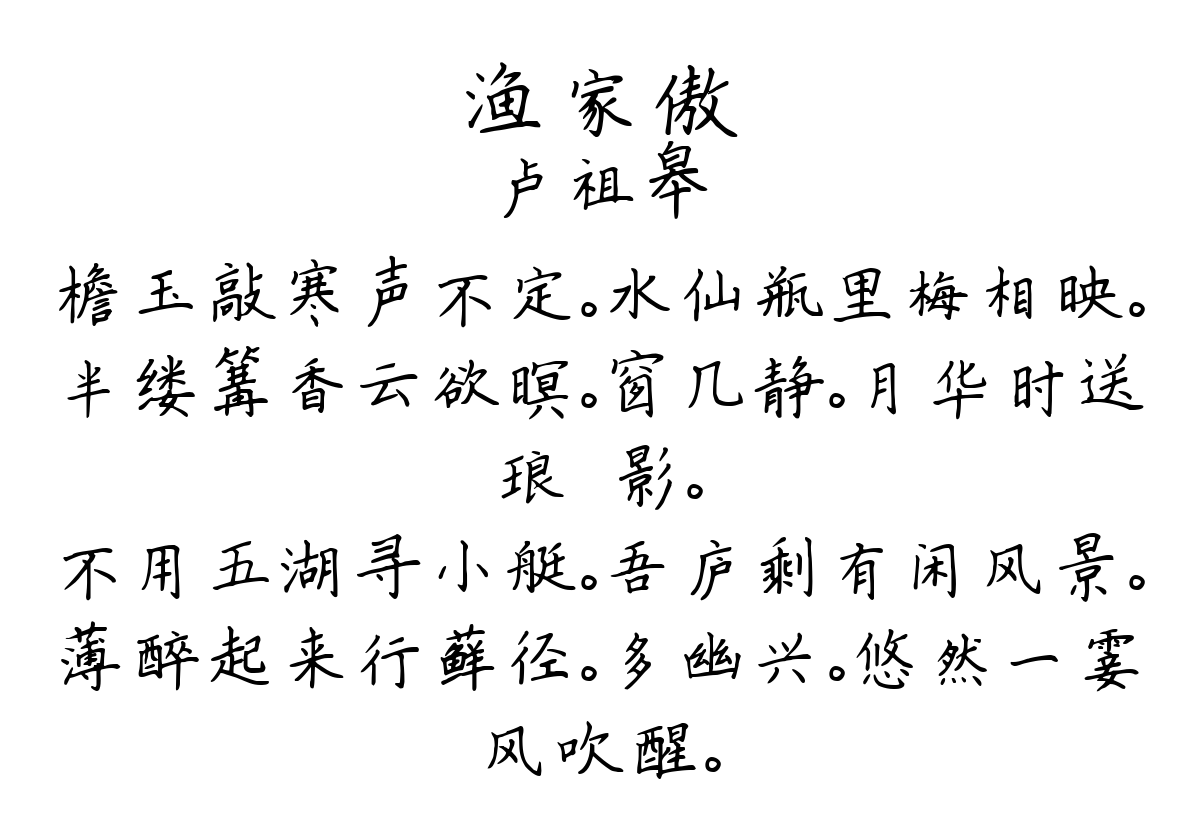 渔家傲
卢祖皋
檐玉敲寒声不定。水仙瓶里梅相映。
半缕篝香云欲暝。窗几静。月华时送
琅 影。
不用五湖寻小艇。吾庐剩有闲风景。
薄醉起来行藓径。多幽兴。悠然一霎
风吹醒。